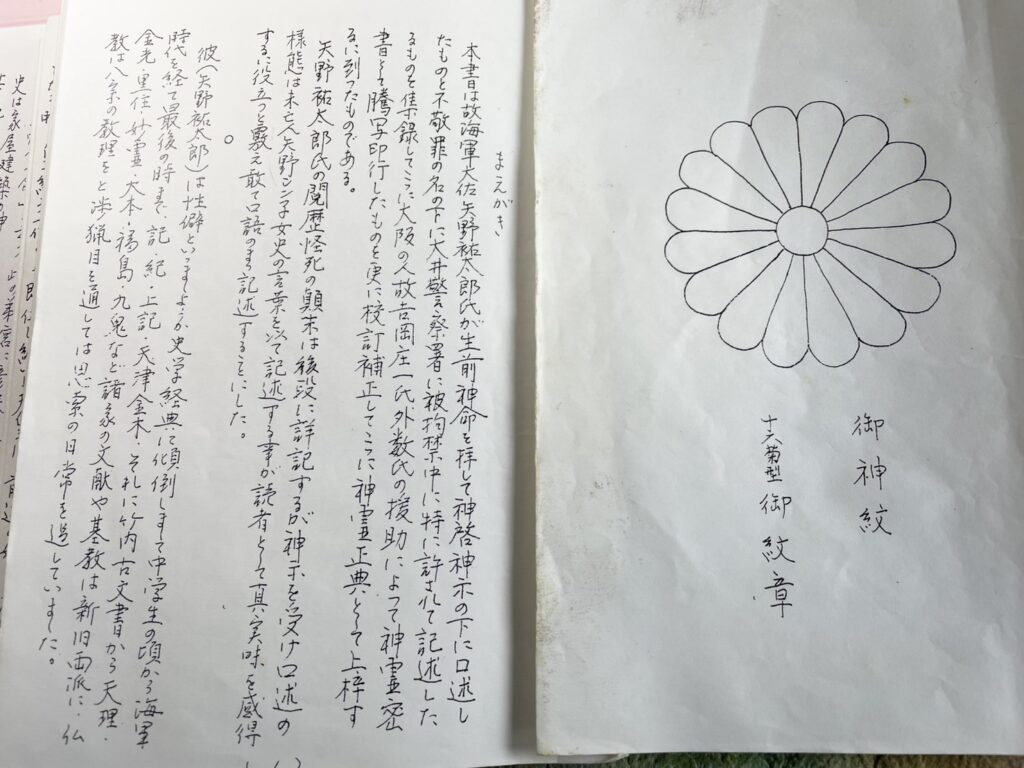 御神紋
十六菊型御紋章
まえがき
本書は故海軍大佐矢野祐太郎氏が生前神命を拝して神啓神示の下に口述し
たものと不敬罪の名の下に大井警察署に被拘禁中に特に許されて記述した
るものを集録してこゝに大阪の人故吉岡庄一氏外数氏の援助によって神霊密
書として騰写印行したものを更に校訂補正してここに神霊正典として上梓す
るに到ったものである。
矢野祐太郎氏の閲歴怪死の顛末は後段に詳記するが神示を受け口述の
様態は未亡人矢野シン子女史の言葉を以て記述する事が読者として真実味を感得
するに役立つと敷え敢て口語のまゝ記述することにした。
彼(矢野祐太郎)は性癖といいますようか史学経典に傾倒しまして中学生の頃から海軍
時代を経て最後の時まで、記・紀・上記・天津金木・それに竹内古文書から天理・
金光・黒住・妙霊・大本・福島・九鬼など諸家の文献や基教は新旧両派に・仏
教は八宗の教理をと渉猟目を通しては思索の日常を送していました。